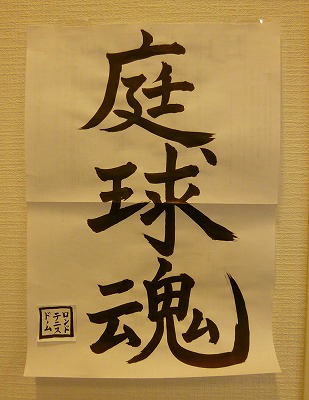 庭球魂
ロンド
テニス
ドーム